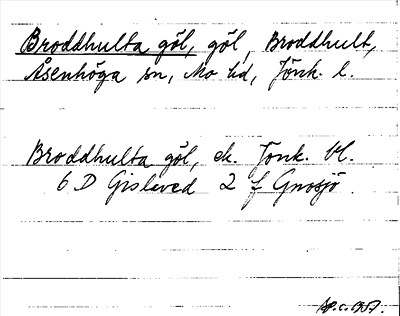 Broddhulta göl, göl, Broddhult,
Åsenhöga sn, Mo hd, Jönk. l.
Broddhulta göl, ek. Jönk. bl.
6 D Gislaved 2 f Gnosjö.